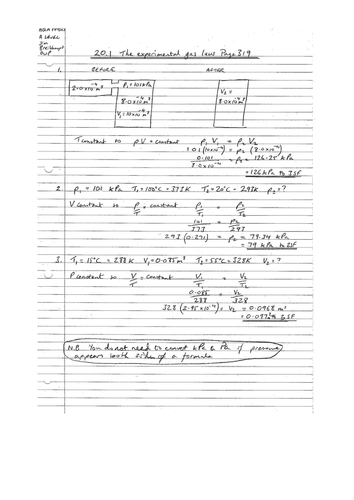 AQA PHYSICS
A LEVEL
20.1 The experimental gas laws Page 319
1. BEFORE AFTER
2.0×10⁻⁴ m³ P₁ = 101 kPa V₂ =
8.0×10⁻⁴ m³ 8.0×10⁻⁴ m³
V₁ = 10×10⁻⁴ m³
T constant so pV = constant P₁ V₁ = P₂ V₂
101 (10×10⁻⁴) = P₂ (8.0×10⁻⁴)
0.101 / 8.0×10⁻⁴ = P₂ = 126.25 kPa
= 126 kPa to 3SF
2. P₁ = 101 kPa T₁ = 100°C = 373K T₂ = 20°C = 293K P₂ = ?
V constant so P/T = constant P₁/T₁ = P₂/T₂
101/373 = P₂/293
293 (0.271) = P₂ = 79.34 kPa
= 79 kPa to 2SF
3. T₁ = 15°C = 288K V₁ = 0.085m³ T₂ = 55°C = 328K V₂ = ?
P constant so V/T = constant V₁/T₁ = V₂/T₂
0.085/288 = V₂/328
328 (2.95×10⁻⁴) = V₂ = 0.0968 m³
N.B. You do not need to convert kPa to Pa if pressure
appears both sides of a formula